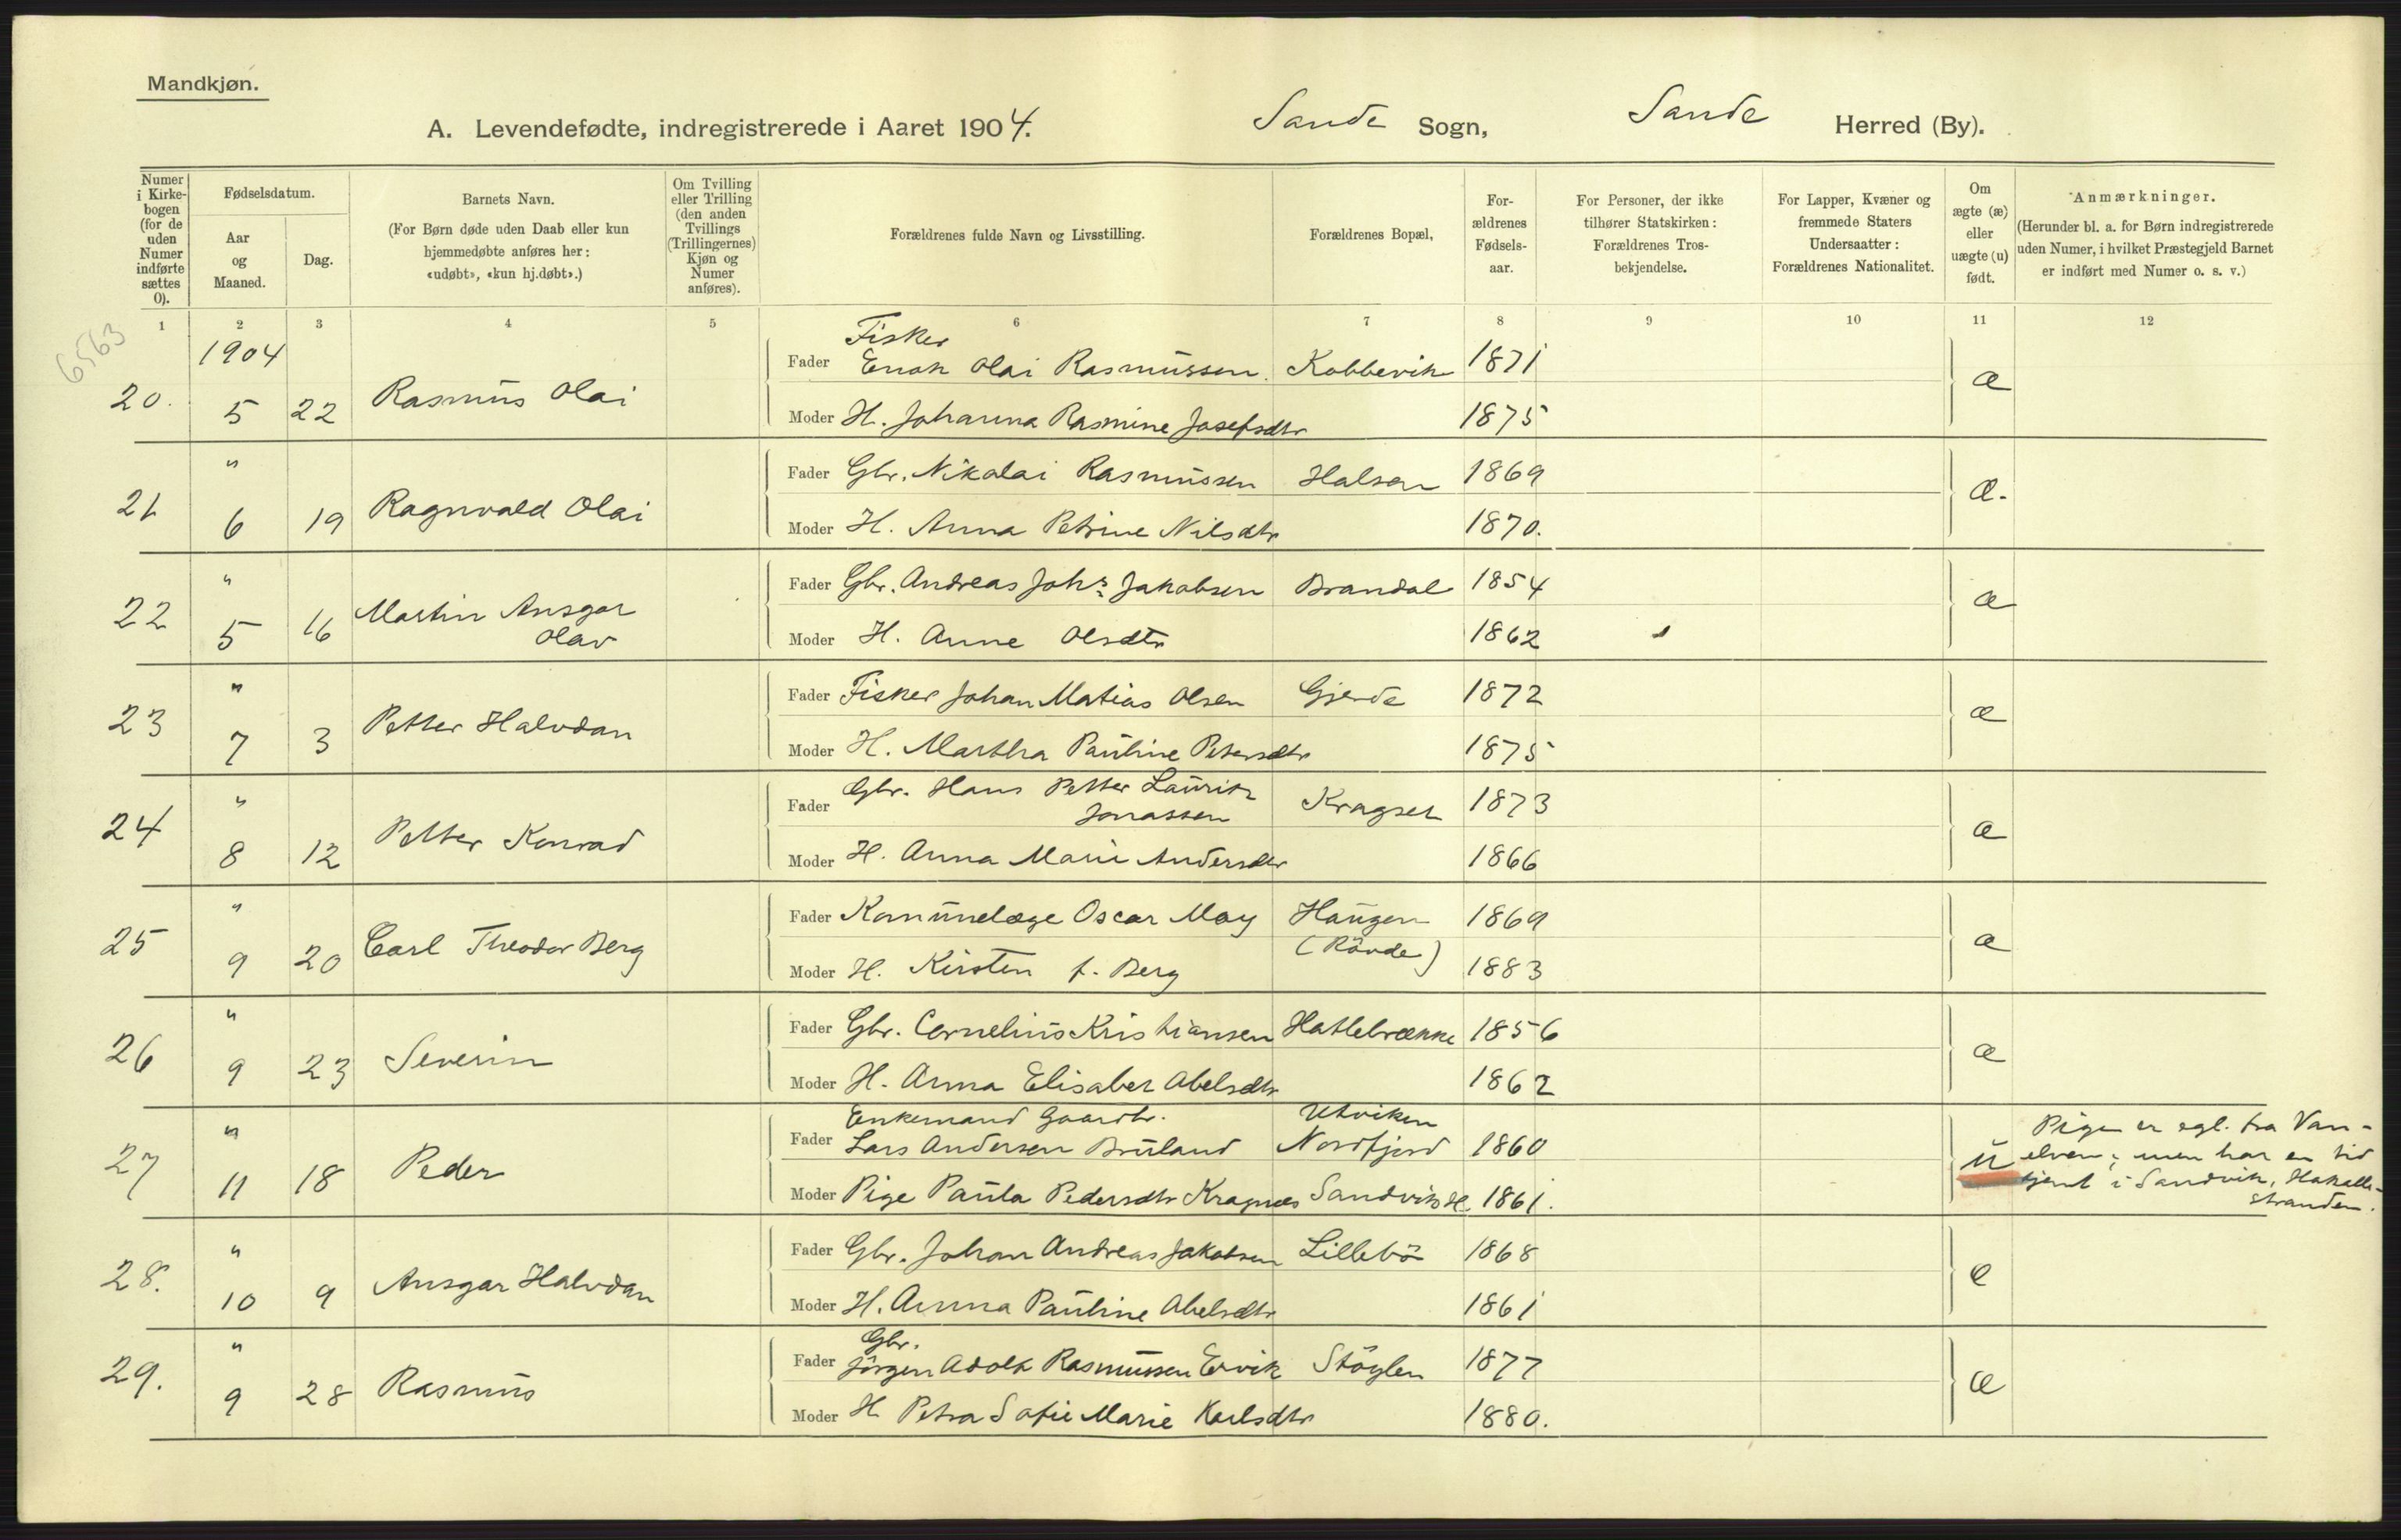 Mandkjøn.
A. Levendefødte, indregistrerede i Aaret 1904. Sande Sogn, Sande Herred (By).
Numer i Kirkebogen (for de uden Numer indførte sættes 0).
Fødselsdatum.
Aar og Maaned.
Dag.
Barnets Navn.
(For Børn døde uden Daab eller kun hjemmedøbte anføres her: «udøbt», «kun hj.døbt».)
Om Tvilling eller Trilling (den anden Tvillings (Trillingernes) Kjøn og Numer anføres).
Forældrenes fulde Navn og Livsstilling.
Forældrenes Bopæl,
Forældrenes Fødselsaar.
For Personer, der ikke tilhører Statskirken: Forældrenes Trosbekjendelse.
For Lapper, Kvæner og fremmede Staters Undersaatter: Forældrenes Nationalitet.
Om ægte (æ) eller uægte (u) født.
Anmærkninger.
(Herunder bl. a. for Børn indregistrerede uden Numer, i hvilket Præstegjeld Barnet er indført med Numer o. s. v.)
1 2 3 4 5 6 7 8 9 10 11 12
6563
1904
20. 5 22 Rasmus Olai
Fisker
Fader Enok Olai Rasmussen. Kobbevik 1871 æ
Moder H. Johanna Rasmine Josefsdtr 1875
21 " 6 19 Ragnvald Olai
Fader Gbr. Nikolai Rasmussen Halsen 1869 æ.
Moder H. Anna Petrine Nilsdtr 1870.
22 " 5 16 Martin Ansgar
Olav
Fader Gbr. Andreas Johs Jakobsen Brandal 1854 æ
Moder H. Anne Olsdtr 1862
23 " 7 3 Petter Halvdan
Fader Fisker Johan Matias Olsen Gjerde 1872 æ
Moder H. Martha Pauline Petersdtr 1875
24 " 8 12 Petter Konrad
Fader Gbr. Hans Petter Lauritz
Jonassen Kragset 1873 æ
Moder H. Anna Marie Andersdtr 1866
25 " 9 20 Carl Theodor Berg
Fader Komunelæge Oscar May Haugen 1869 æ
(Rövde)
Moder H. Kirsten f. Berg 1883
26 " 9 23 Severin
Fader Gbr. Cornelius Kristiansen Hatlebrække 1856 æ
Moder H. Anna Elisabet Abelsdtr 1862
27 " 11 18 Peder
Enkemand Gaardbr. Utviken
Fader Lars Andersen Bruland Nordfjord 1860 u
Moder Pige Paula Pedersdtr Kragnæs Sandvik H. 1861.
Pigen er egl. fra Van-
elven; men har en tid
tjent i Sandvik, Hakalle-
stranden.
28. " 10 9 Ansgar Halvdan
Fader Gbr. Johan Andreas Jakobsen Lillebö 1868 æ
Moder H. Anna Pauline Abelsdtr 1861
29. " 9 28 Rasmus
Gbr.
Fader Jörgen Adolf Rasmussen Ervik Stöylen 1877 æ
Moder H Petra Sofie Marie Karlsdtr 1880.